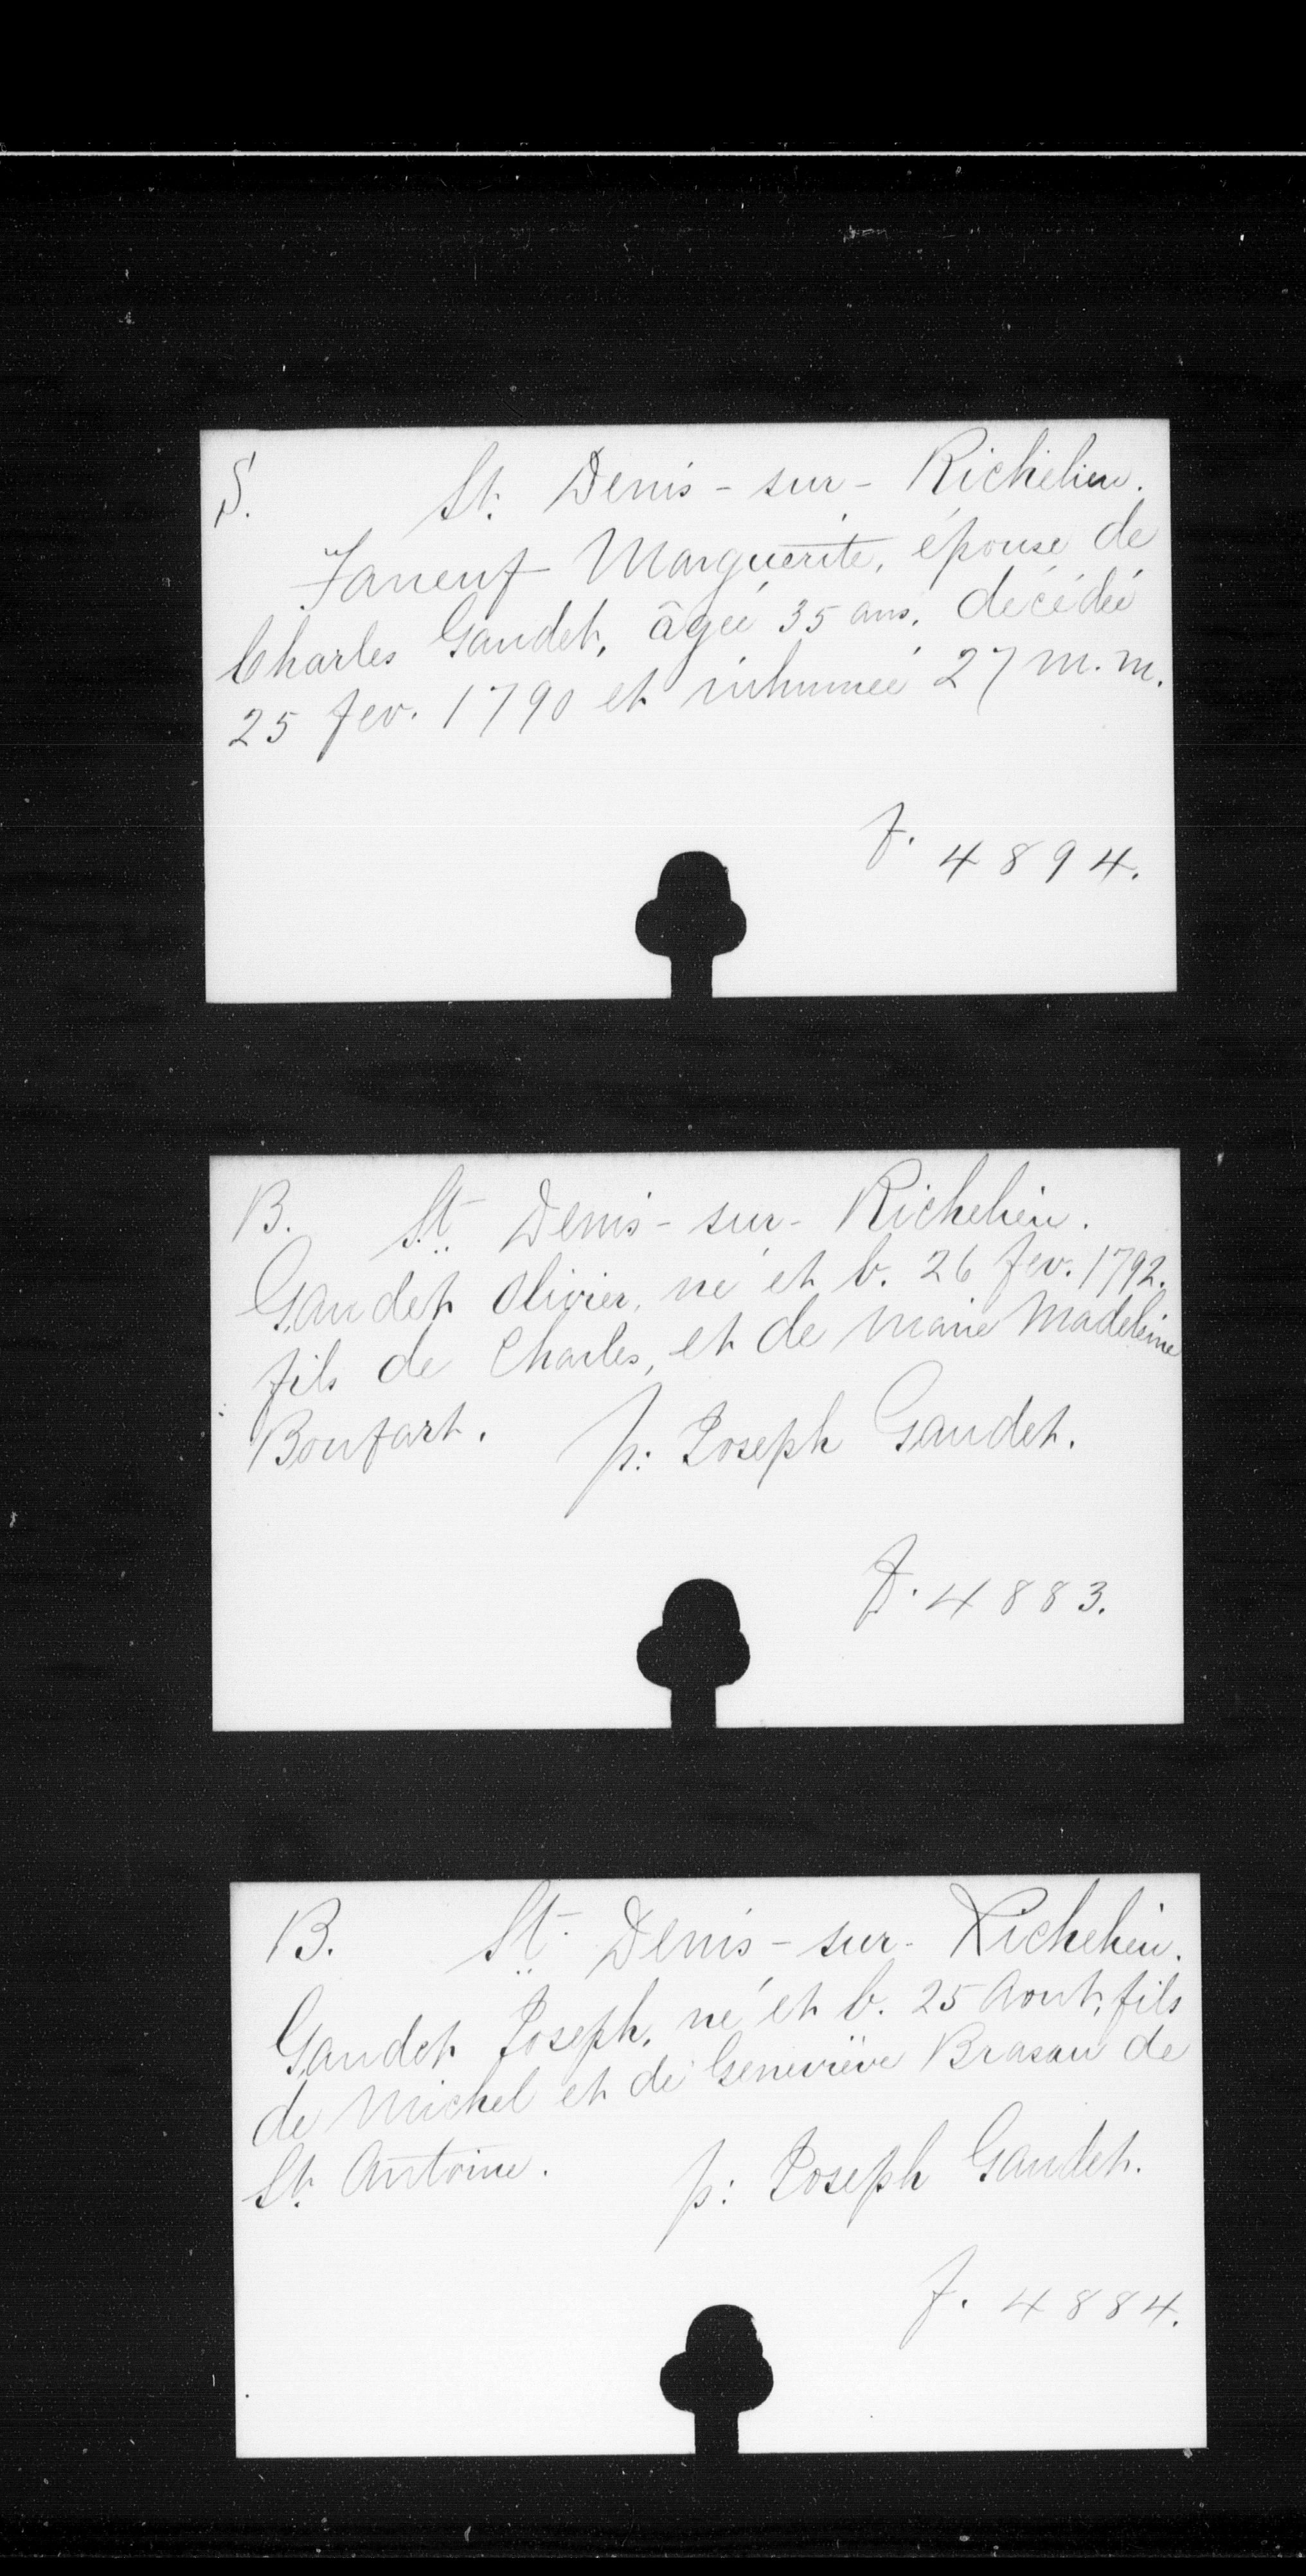 S. St. Denis - sur - Richelieu.
Faneuf Marguerite, épouse de
Charles Gaudet, âgée 35 ans, décédée
25 fev. 1790 et inhumée 27 m. m.
f. 4894.
B. St. Denis - sur - Richelieu.
Gaudet Olivier, né et b. 26 fev. 1792.
fils de Charles, et de Marie Madeleine
Boufart. p: Joseph Gaudet.
f. 4883.
B. St. Denis - sur - Richelieu.
Gaudet Joseph, né et b. 25 Aout, fils
de Michel et de Geneviève Brasau de
St. Antoine. p: Joseph Gaudet.
f. 4884.